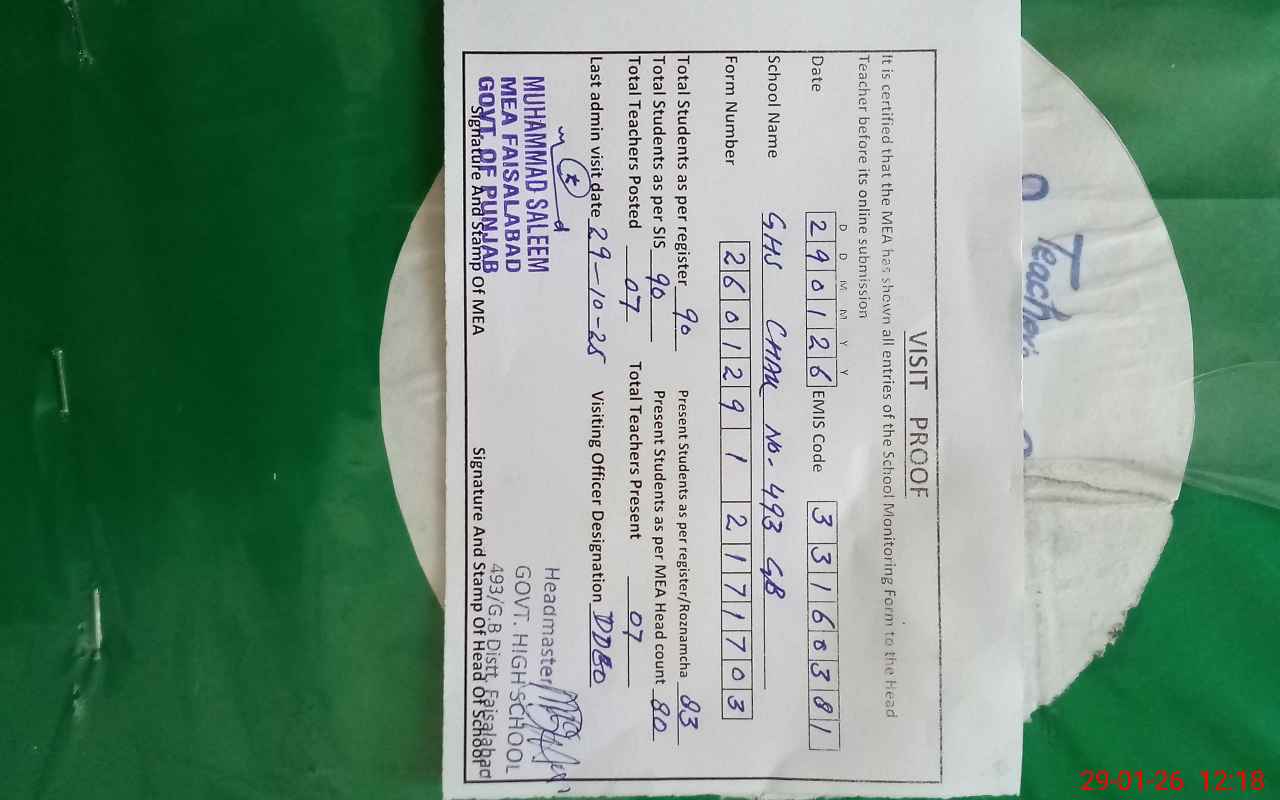 VISIT PROOF
It is certified that the MEA has shown all entries of the School Monitoring Form to the Head
Teacher before its online submission
D D M M Y Y
Date 290126 EMIS Code 33160381
School Name GHS CHAK No. 493 GB
Form Number 26012911 2171703
Total Students as per register 90 Present Students as per register/Roznamcha 83
Total Students as per SIS 90 Present Students as per MEA Head count 80
Total Teachers Posted 07 Total Teachers Present 07
Last admin visit date 29-10-25 Visiting Officer Designation DDEO
MUHAMMAD SALEEM
MEA FAISALABAD
GOVT. OF PUNJAB
Signature And Stamp Of MEA
Headmaster
GOVT. HIGH SCHOOL
493/G.B Distt, Faisalabad
Signature And Stamp Of Head Of School
Teacher
29-01-26 12:18